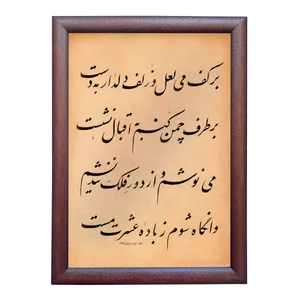 بر کف می لعل و زلف دلدار به دست
بر طرف چمن کنم به اقبال نشست
می نوشم و از دور فلک نندیشم
وانگاه شوم ز باده عشرت مست